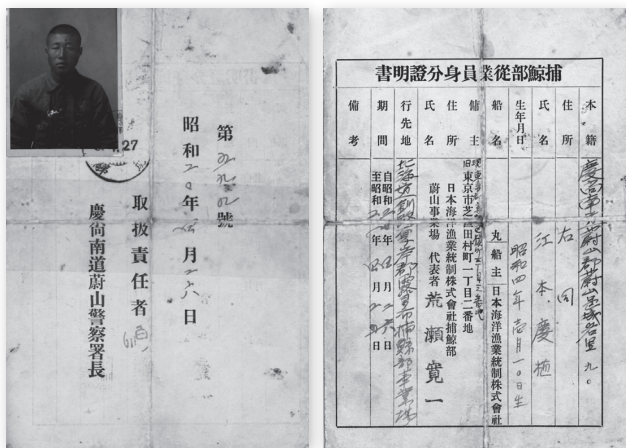 第 號
昭和二〇年 月二六日
取扱責任者
慶尙南道蔚山警察署長
27
捕鯨部從業員身分證明書
本籍 慶尙南道蔚山郡蔚山邑城 里 九〇
住所 右同
氏名 江本慶植
生年月日 昭和四年壱月一〇日生
船名 丸 船主 日本海洋漁業統制株式會社
傭主
住所 旧東京市芝區田村町一丁目二番地
日本海洋漁業統制株式會社捕鯨部
氏名 蔚山事業場 代表者 荒瀬寛一
行先地
期間 自昭和 年 月 日
至昭和 年 月 日
備考